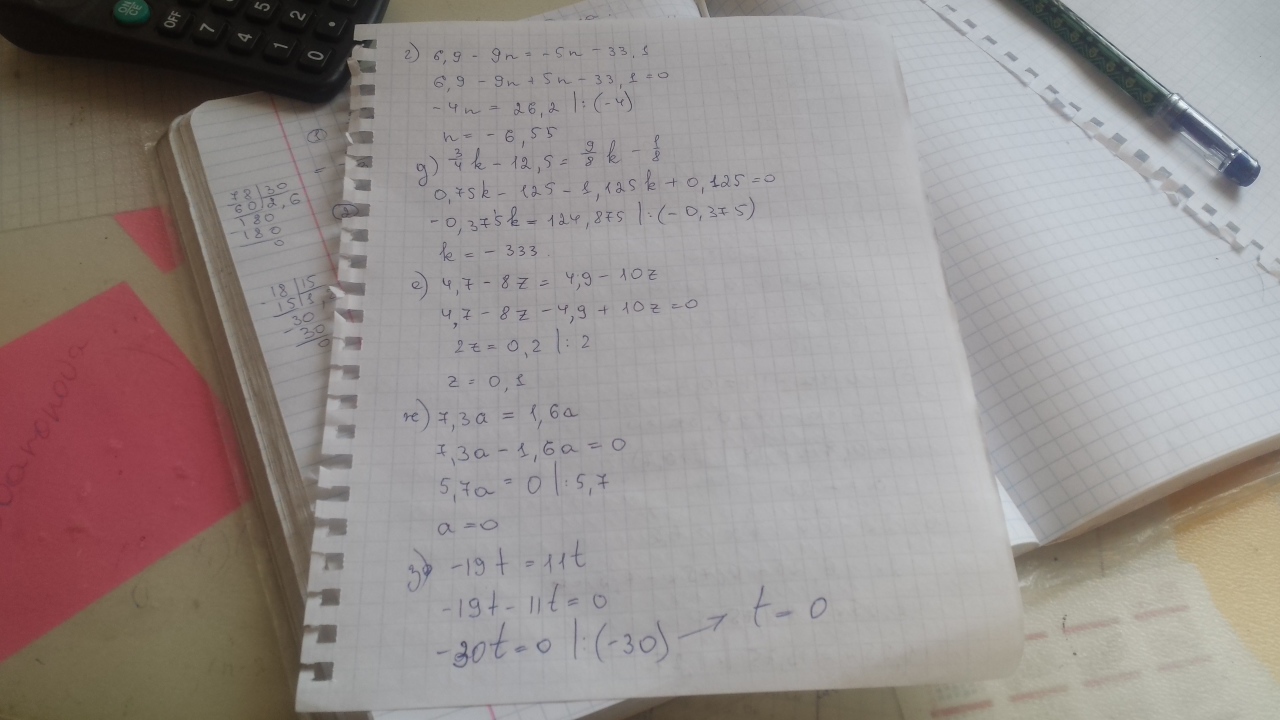 OFF
7
4
1
0
2
•
ON/C
78 30
60 2,6
180
-180
0
18 15
-15 1,
30
-30
0
г) 6,9 - 9n = -5n - 33,1
6,9 - 9n + 5n - 33,1 = 0
-4n = 26,2 |:(-4)
n = -6,55
д) 3/4 k - 12,5 = 9/8 k - 1/8
0,75k - 125 - 1,125k + 0,125 = 0
-0,375k = 124,875 |:(-0,375)
k = -333.
е) 4,7 - 8z = 4,9 - 10z
4,7 - 8z - 4,9 + 10z = 0
2z = 0,2 |: 2
z = 0,1
ж) 7,3a = 1,6a
7,3a - 1,6a = 0
5,7a = 0 |: 5,7
a = 0
з) -19t = 11t
-19t - 11t = 0
-30t = 0 |:(-30) → t = 0